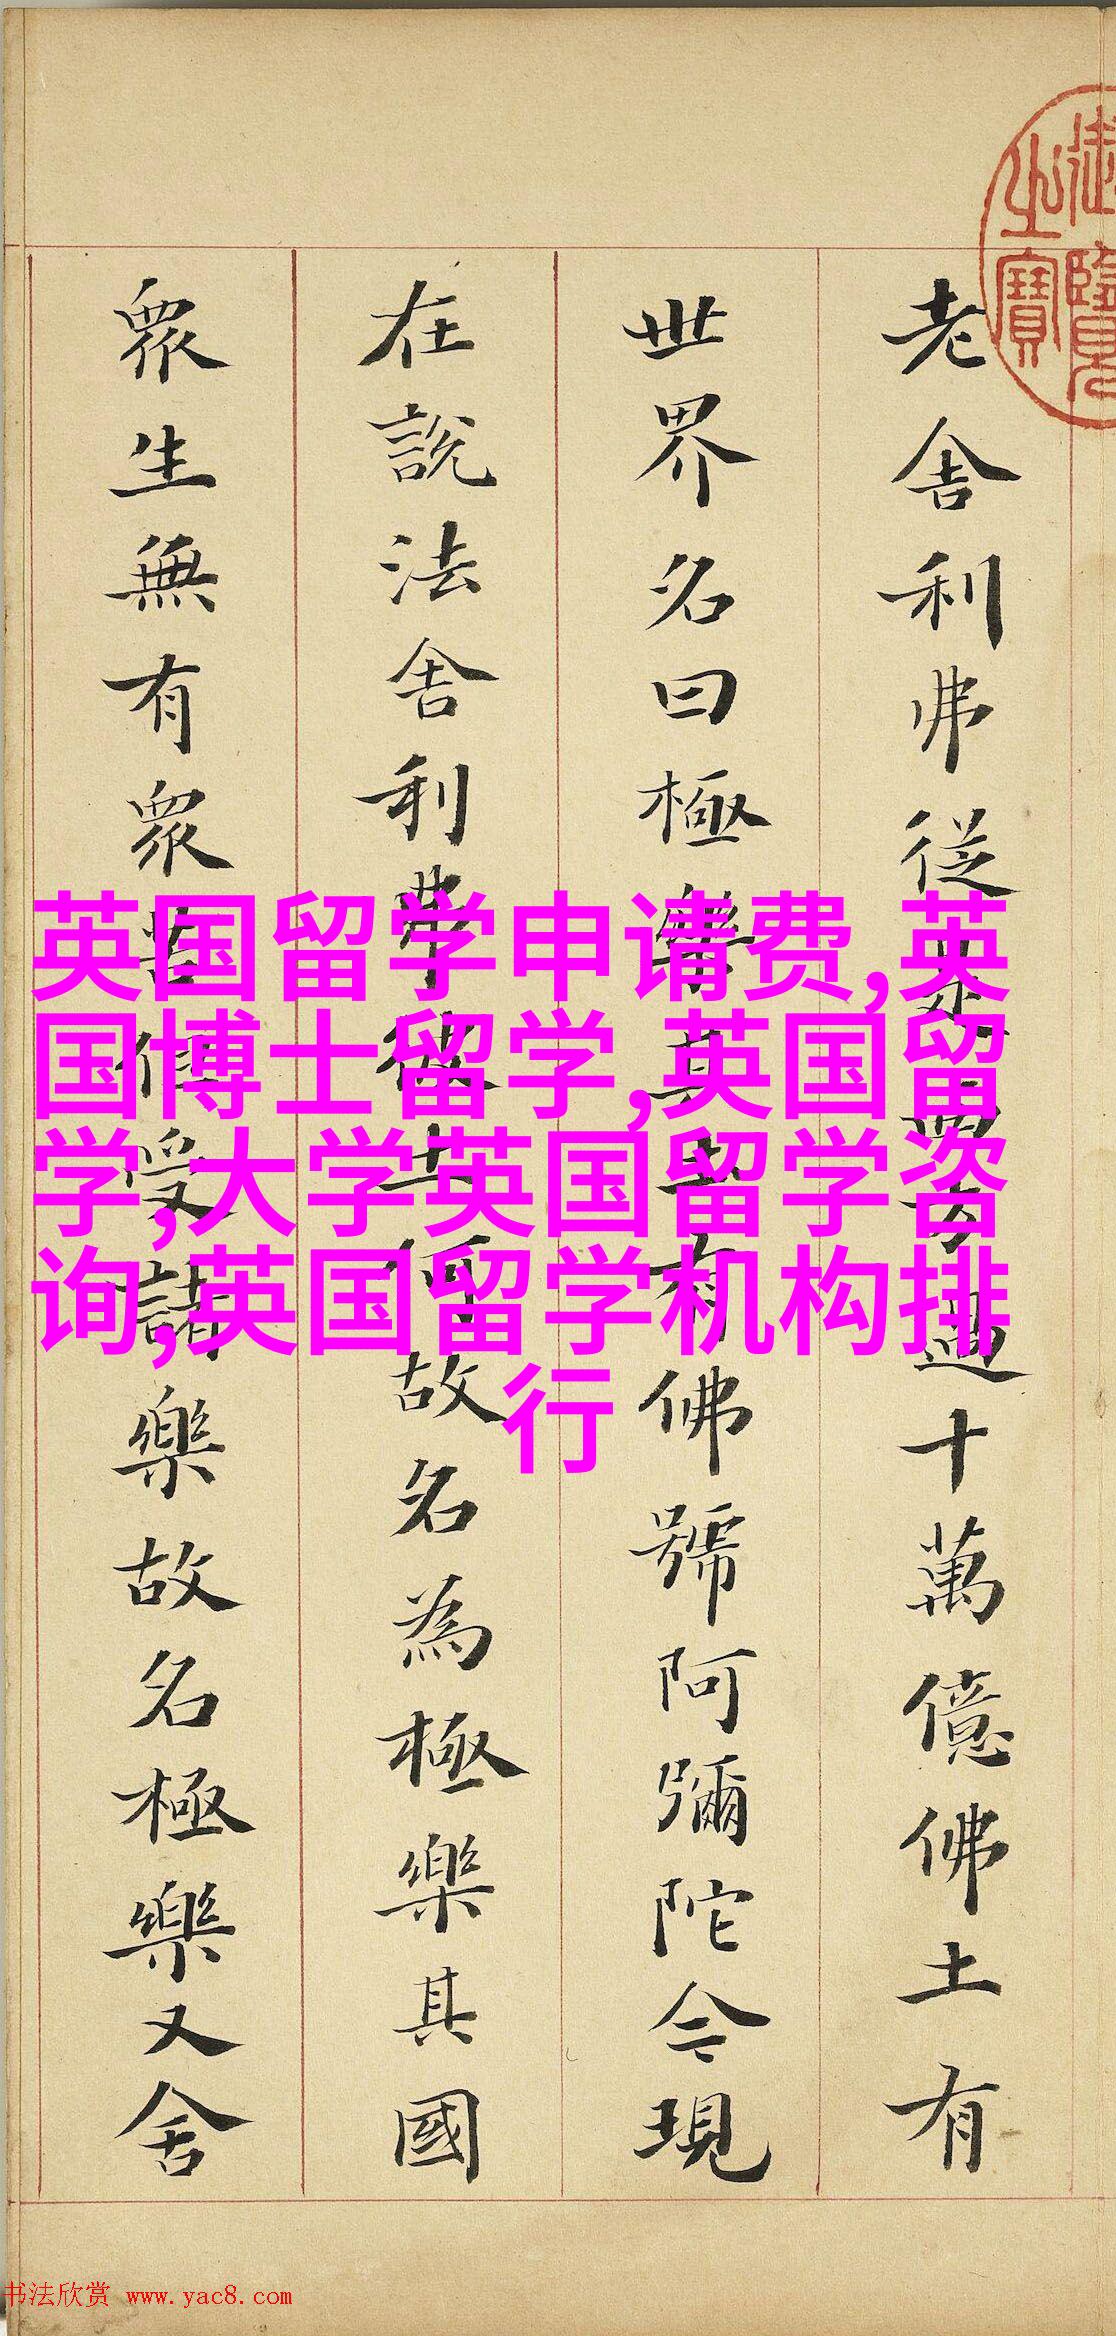 老舍利弗從是西方過十萬億佛土有
世界名曰極樂其土有佛號阿彌陀今現
在說法舍利弗彼土何故名為極樂其國
眾生無有眾苦但受諸樂故名極樂又舍
御覽
之寶
英国留学申请费,英
国博士留学,英国留
学,大学英国留学咨
询,英国留学机构排
行
书法欣赏 www.yac8.com